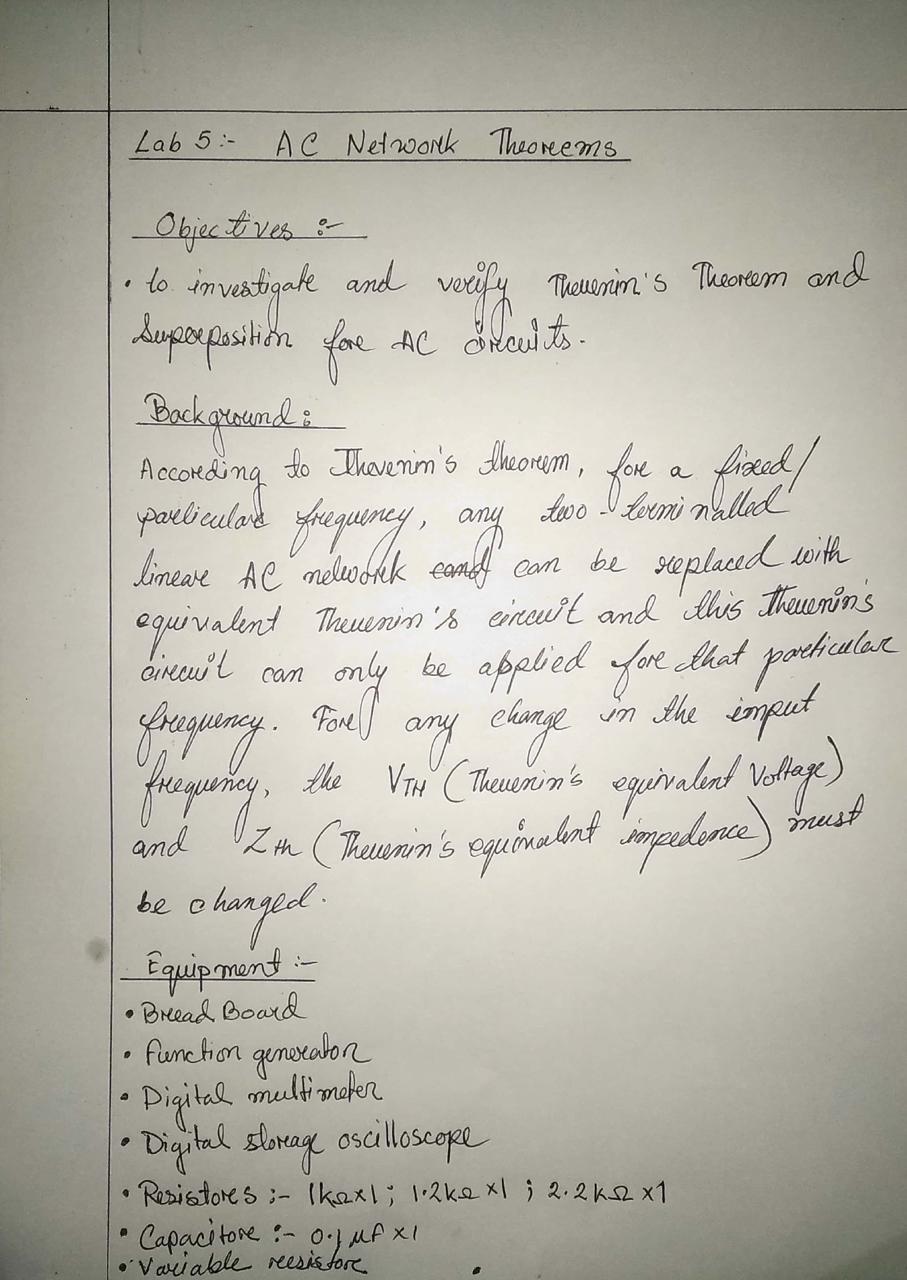 Lab 5:- AC Network Theorems
Objectives :-
• to investigate and verify Thevenin's Theorem and
Superposition for AC circuits.
Background:
According to Thevenin's theorem, for a fixed/
particular frequency, any two-terminalled
linear AC network can be replaced with
equivalent Thevenin's circuit and this Thevenin's
circuit can only be applied for that particular
frequency. For any change in the input
frequency, the VTH (Thevenin's equivalent Voltage)
and ZTH (Thevenin's equivalent impedence) must
be changed.
Equipment :-
• Bread Board
• Function generator
• Digital multimeter
• Digital storage oscilloscope
• Resistors :- 1kΩx1; 1.2kΩ x1 ; 2.2kΩ x1
• Capacitor :- 0.1 μF x1
• Variable resistor